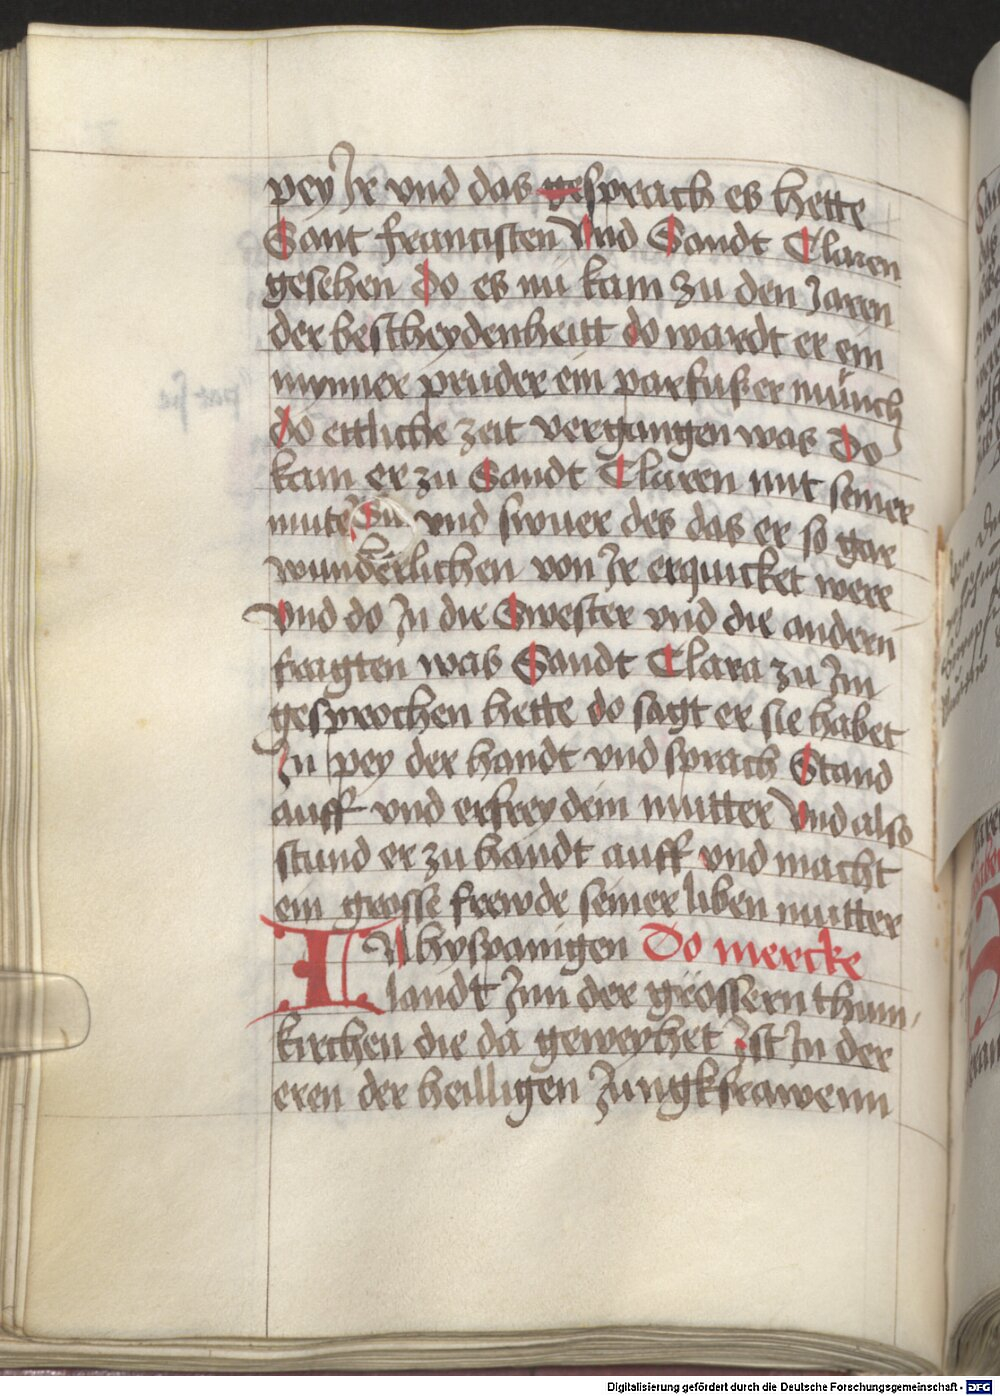 pey Jr vnd das gesprach es hette
Sant francisten Vnd Sandt Claren
gesehen Do es nu kam zu den Jaren
der bescheydenheitt do wardt er ein
mynner pruder ein parfusser münch
do ettliche zeit vergangen was Do
kam er zu Sandt Claren mit seiner
muter vnd swuer des das er so gar
wunderlichen von Jr erquicket were
Vnd do Jn die Swester vnd die andern
fragten was Sandt Clara zu Jm
gesprochen hette do sagt er sie habet
Jn pey der handt vnd sprach Stand
auff vnd erfrey dein mutter Vnd also
stund er zu handt auff vnd macht
ein grosse frewde seiner liben mutter
IN hyspanigen Do mercke
landt Jnn der grössern thum
kirchen die da geweyhet Jst Jn der
eren der heilligen Jungkfrawenn
Digitalisierung gefördert durch die Deutsche Forschungsgemeinschaft - DFG